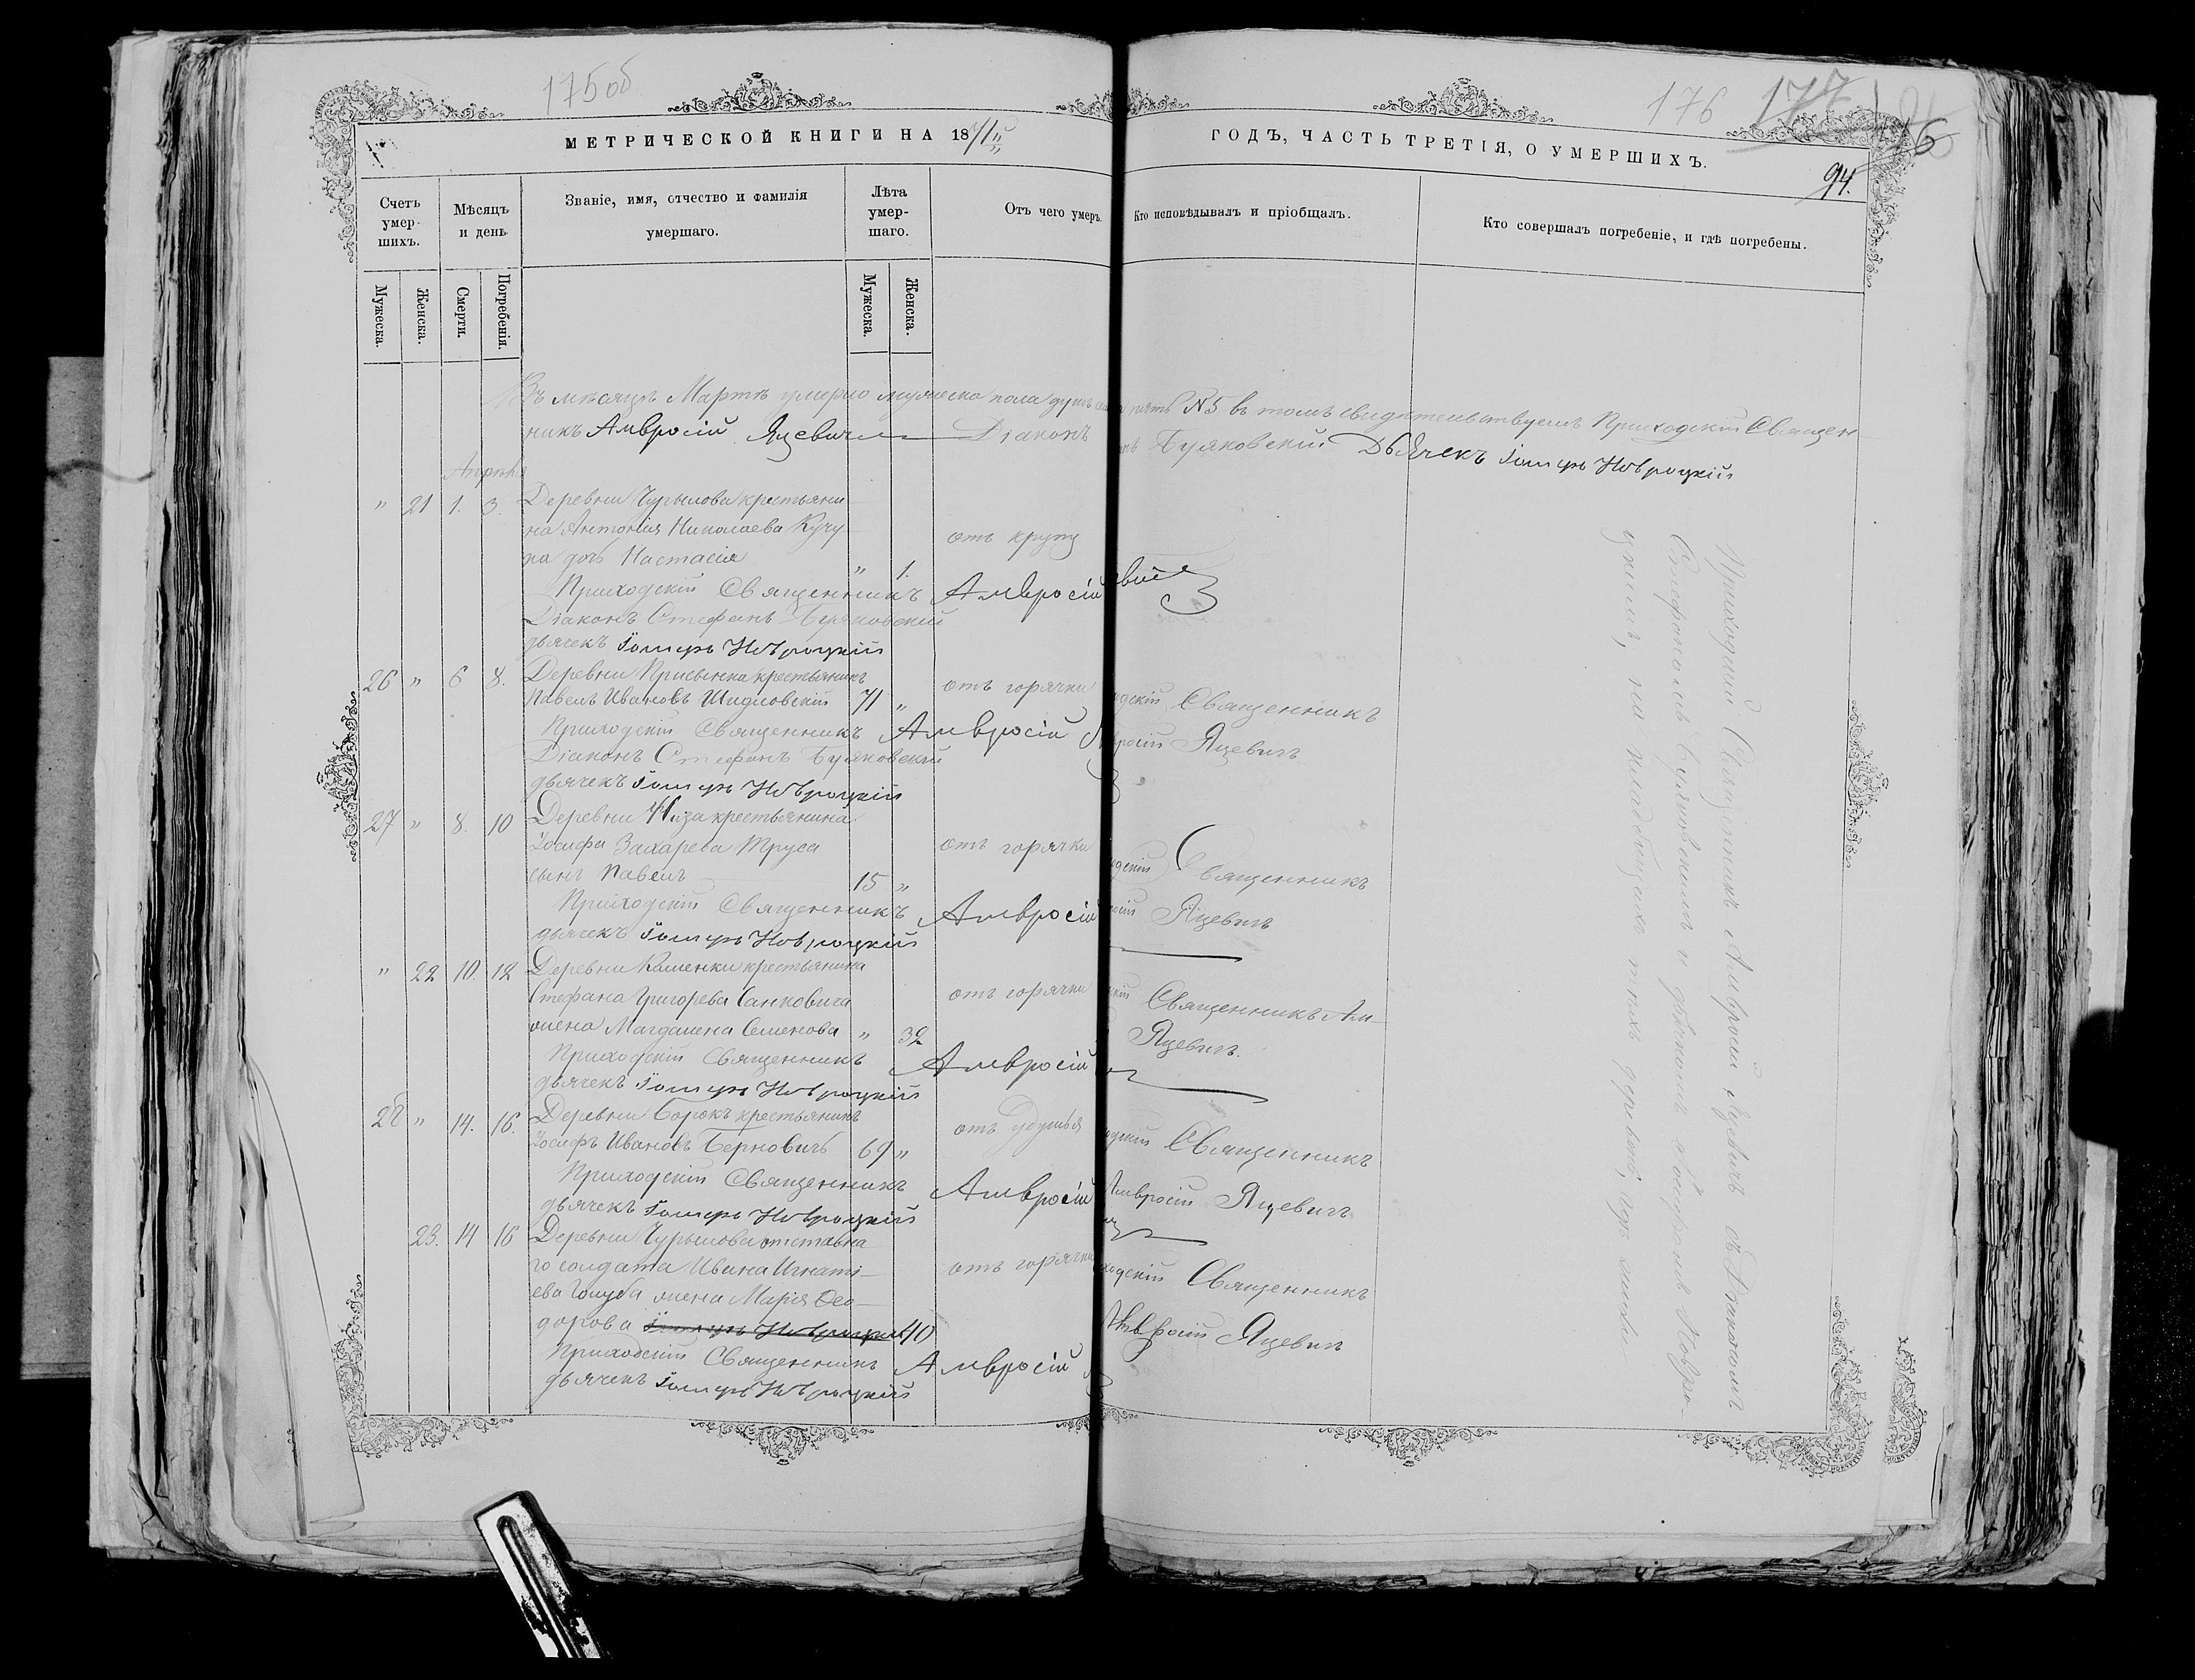 175об
176 177
94.
16
МЕТРИЧЕСКОЙ КНИГИ НА 1871й ГОДЪ, ЧАСТЬ ТРЕТІЯ, О УМЕРШИХЪ.
Счетъ умер- шихъ.
Мѣсяцъ и день
Званіе, имя, отчество и фамилія умершаго.
Лѣта умер- шаго.
Отъ чего умеръ.
Кто исповѣдывалъ и пріобщалъ.
Кто совершалъ погребеніе, и гдѣ погребены.
Мужеска. Женска. Смерти. Погребенія. Мужеска. Женска.
Въ мѣсяцѣ Мартѣ умерло мужеска пола душъ пять №5 въ томъ свидѣтельствуемъ Приходскій Священ-
никъ Амвросій Яцевичъ Діаконъ Буяковскій Дьячекъ Іосифъ Новроцкій
Апрѣль
" 21 1. 3. Деревни Чурылова крестьяни-
на Антонія Николаева Кучу-
ра дочь Настасія " 1. отъ крупу
Приходскій Священникъ Амвросій
Діаконъ Стефанъ Буяковскій
дьячекъ Іосифъ Новроцкій
26 " 6 8. Деревни Присынка крестьянинъ
Павелъ Ивановъ Шидловскій 71 " отъ горячки Священникъ
Приходскій Священникъ Амвросій Яцевичъ
Діаконъ Стефанъ Буяковскій
дьячекъ Іосифъ Новроцкій
27 " 8. 10 Деревни крестьянина
Іосифа Захарева Труса отъ горячки
сынъ Павелъ 15 " Священникъ
Приходскій Священникъ Амвросій Яцевичъ
дьячекъ Іосифъ Новроцкій
" 22 10. 12 Деревни Каменки крестьянина
Стефана Григорева Санковича отъ горячки Священникъ Ам-
жена Магдалена Семенова " 32 Яцевичъ.
Приходскій Священникъ Амвросій
дьячекъ Іосифъ Новроцкій
28 " 14. 16. Деревни Борокъ крестьянинъ
Іосифъ Ивановъ Берновичъ 69 " отъ удушья Священникъ
Приходскій Священникъ Амвросій Амвросій Яцевичъ
дьячекъ Іосифъ Новроцкій
23. 14 16 Деревни Чурылова отставна-
го солдата Ивана Игнаті- отъ горячки Священникъ
ева Голуба жена Марія Ѳео-
дорова 40 Амвросій Яцевичъ
Приходскій Священникъ Амвросій
дьячекъ Іосифъ Новроцкій
Приходскій Священникъ Амвросій Яцевичъ съ Діакономъ
Стефаномъ Буяковскимъ и дьячкомъ Іосифомъ Новро-
цкимъ, на кладбищахъ тѣхъ деревень, гдѣ жили